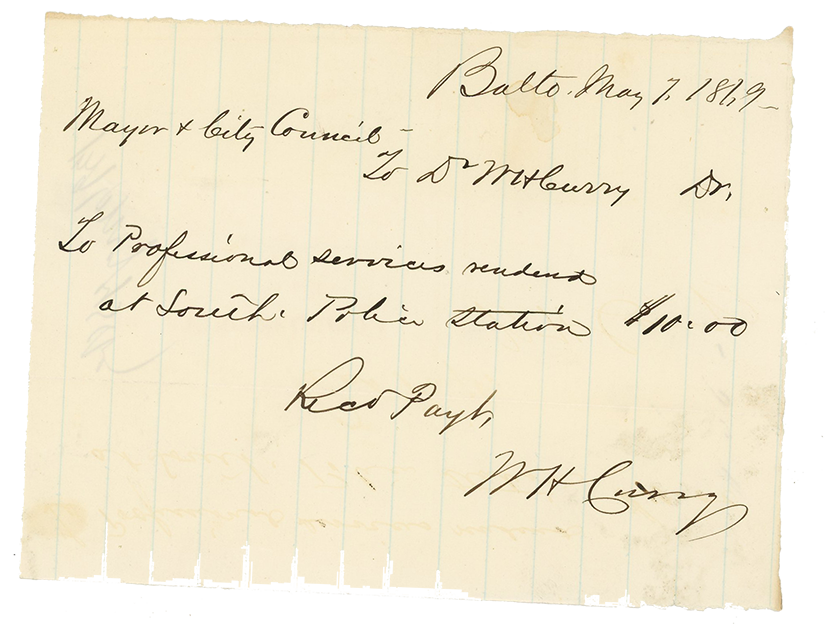 Balto. May 7. 1869-
Mayor & City Council -
To Dr WH Curry Dr.
To Professional services rendered
at South. Police Station $10.00
Recd Payt,
WH Curry